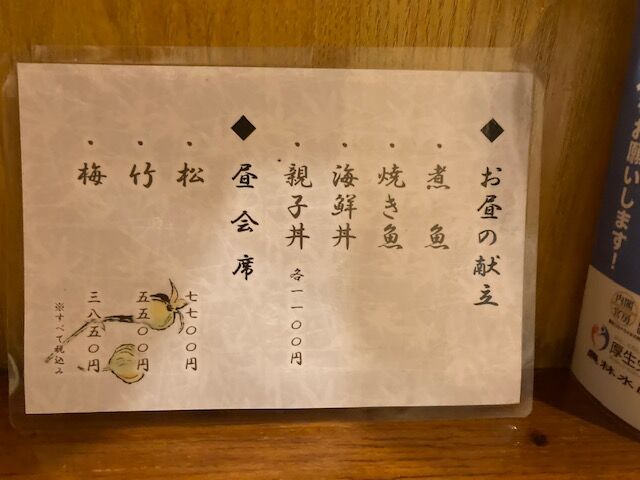 ◆お昼の献立
・煮魚
・焼き魚
・海鮮丼
・親子丼 各一一〇〇円
◆昼会席
・松 七七〇〇円
・竹 五五〇〇円
・梅 三八五〇円
※すべて税込み
お願いします!
内閣官房
厚生
農林水